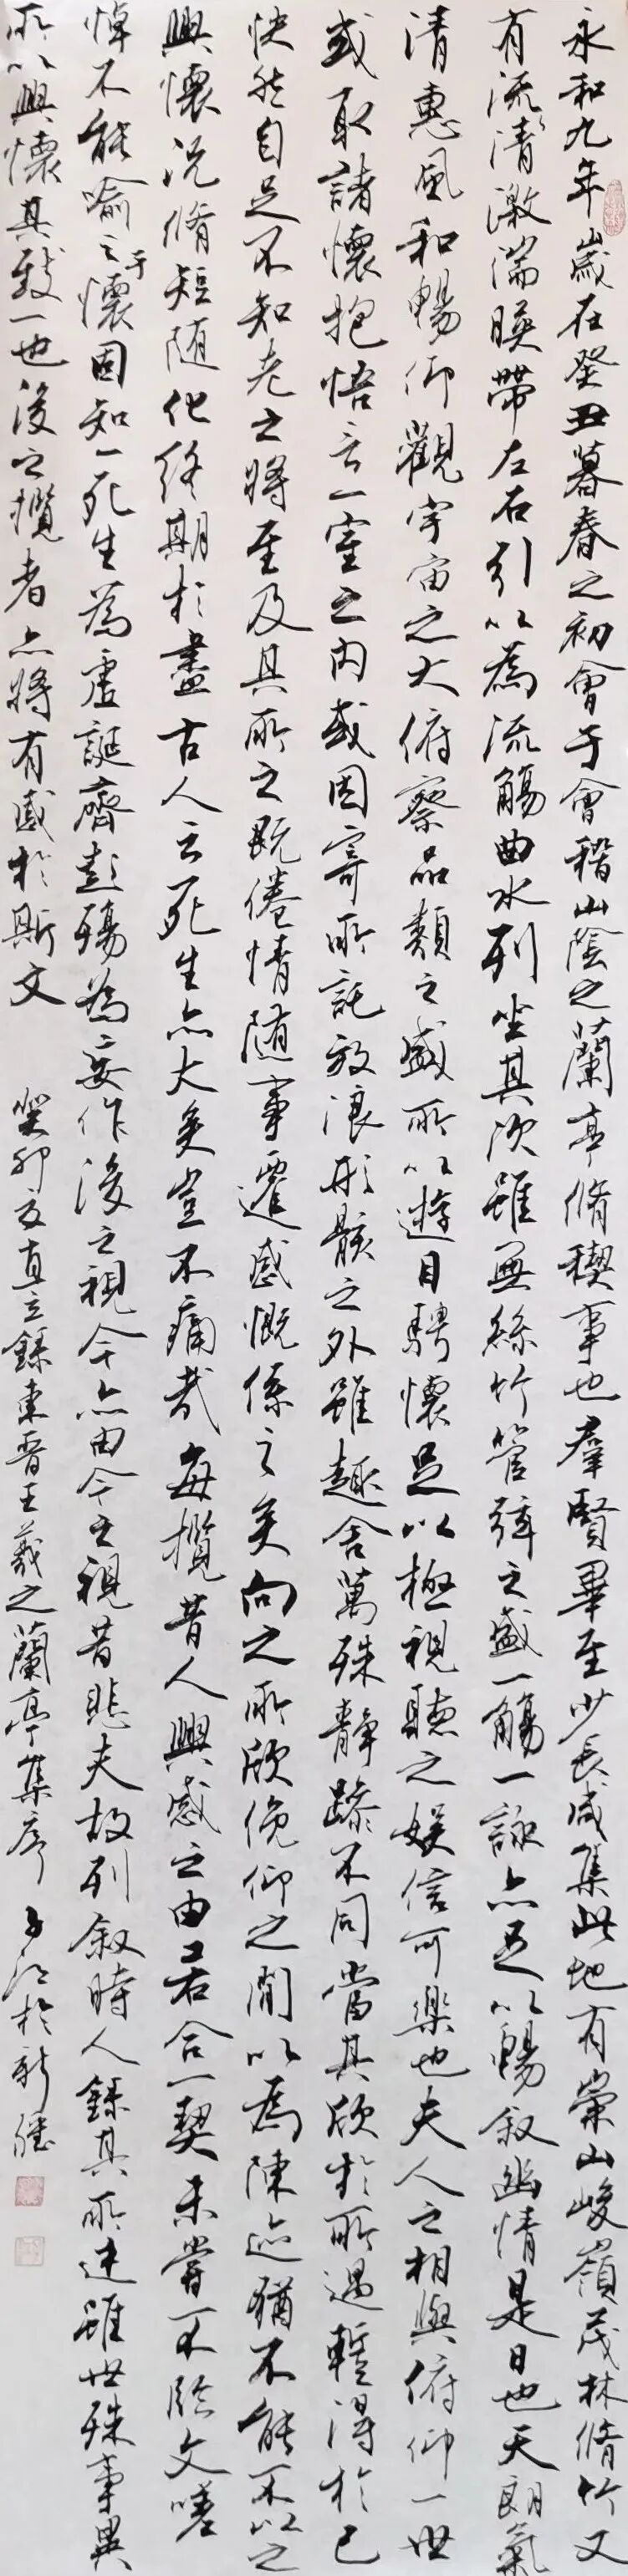 永和九年歲在癸丑暮春之初會于會稽山陰之蘭亭脩稧事也羣賢畢至少長咸集此地有崇山峻嶺茂林脩竹又
有流清激湍暎帶左右引以為流觴曲水列坐其次雖無絲竹管弦之盛一觴一詠亦足以暢叙幽情是日也天朗氣
清惠風和暢仰觀宇宙之大俯察品類之盛所以遊目騁懷足以極視聽之娛信可樂也夫人之相與俯仰一世
或取諸懷抱悟言一室之內或因寄所託放浪形骸之外雖趣舍萬殊靜躁不同當其欣於所遇蹔得於己
快然自足不知老之將至及其所之既倦情随事遷感慨係之矣向之所欣俛仰之閒以為陳迹猶不能不以之
興懷況脩短随化終期於盡古人云死生亦大矣豈不痛哉每攬昔人興感之由若合一契未嘗不臨文嗟
悼不能喻之于懷固知一死生為虛誕齊彭殤為妄作後之視今亦由今之視昔悲夫故列叙時人錄其所述雖世殊事異
所以興懷其致一也後之攬者亦將有感於斯文 癸卯夏直立錄東晉王羲之蘭亭集序 子江於新疆